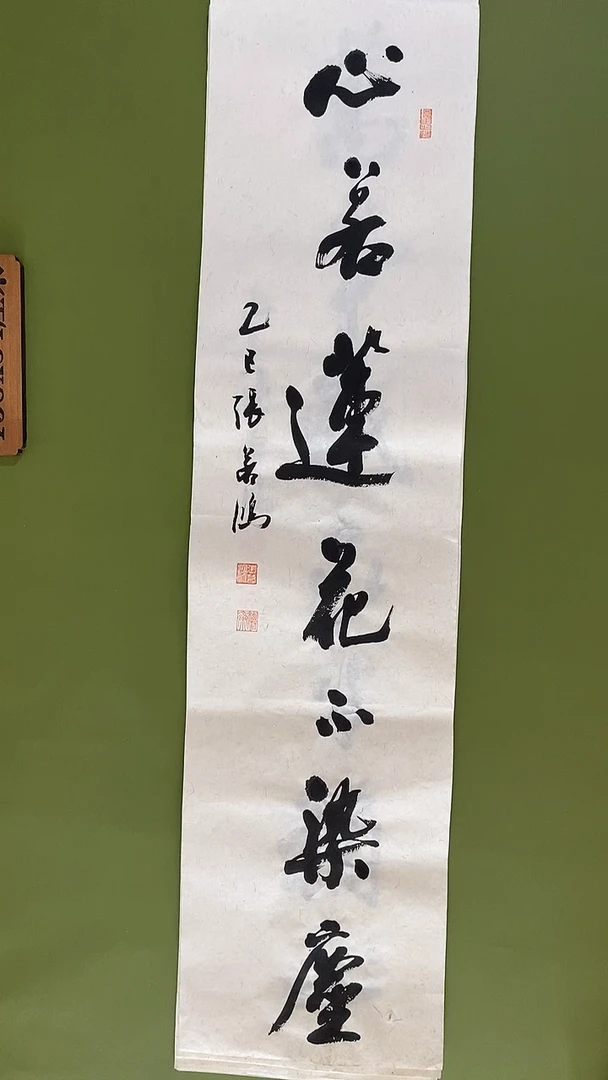 心若蓮花不染塵
乙巳張若鴻